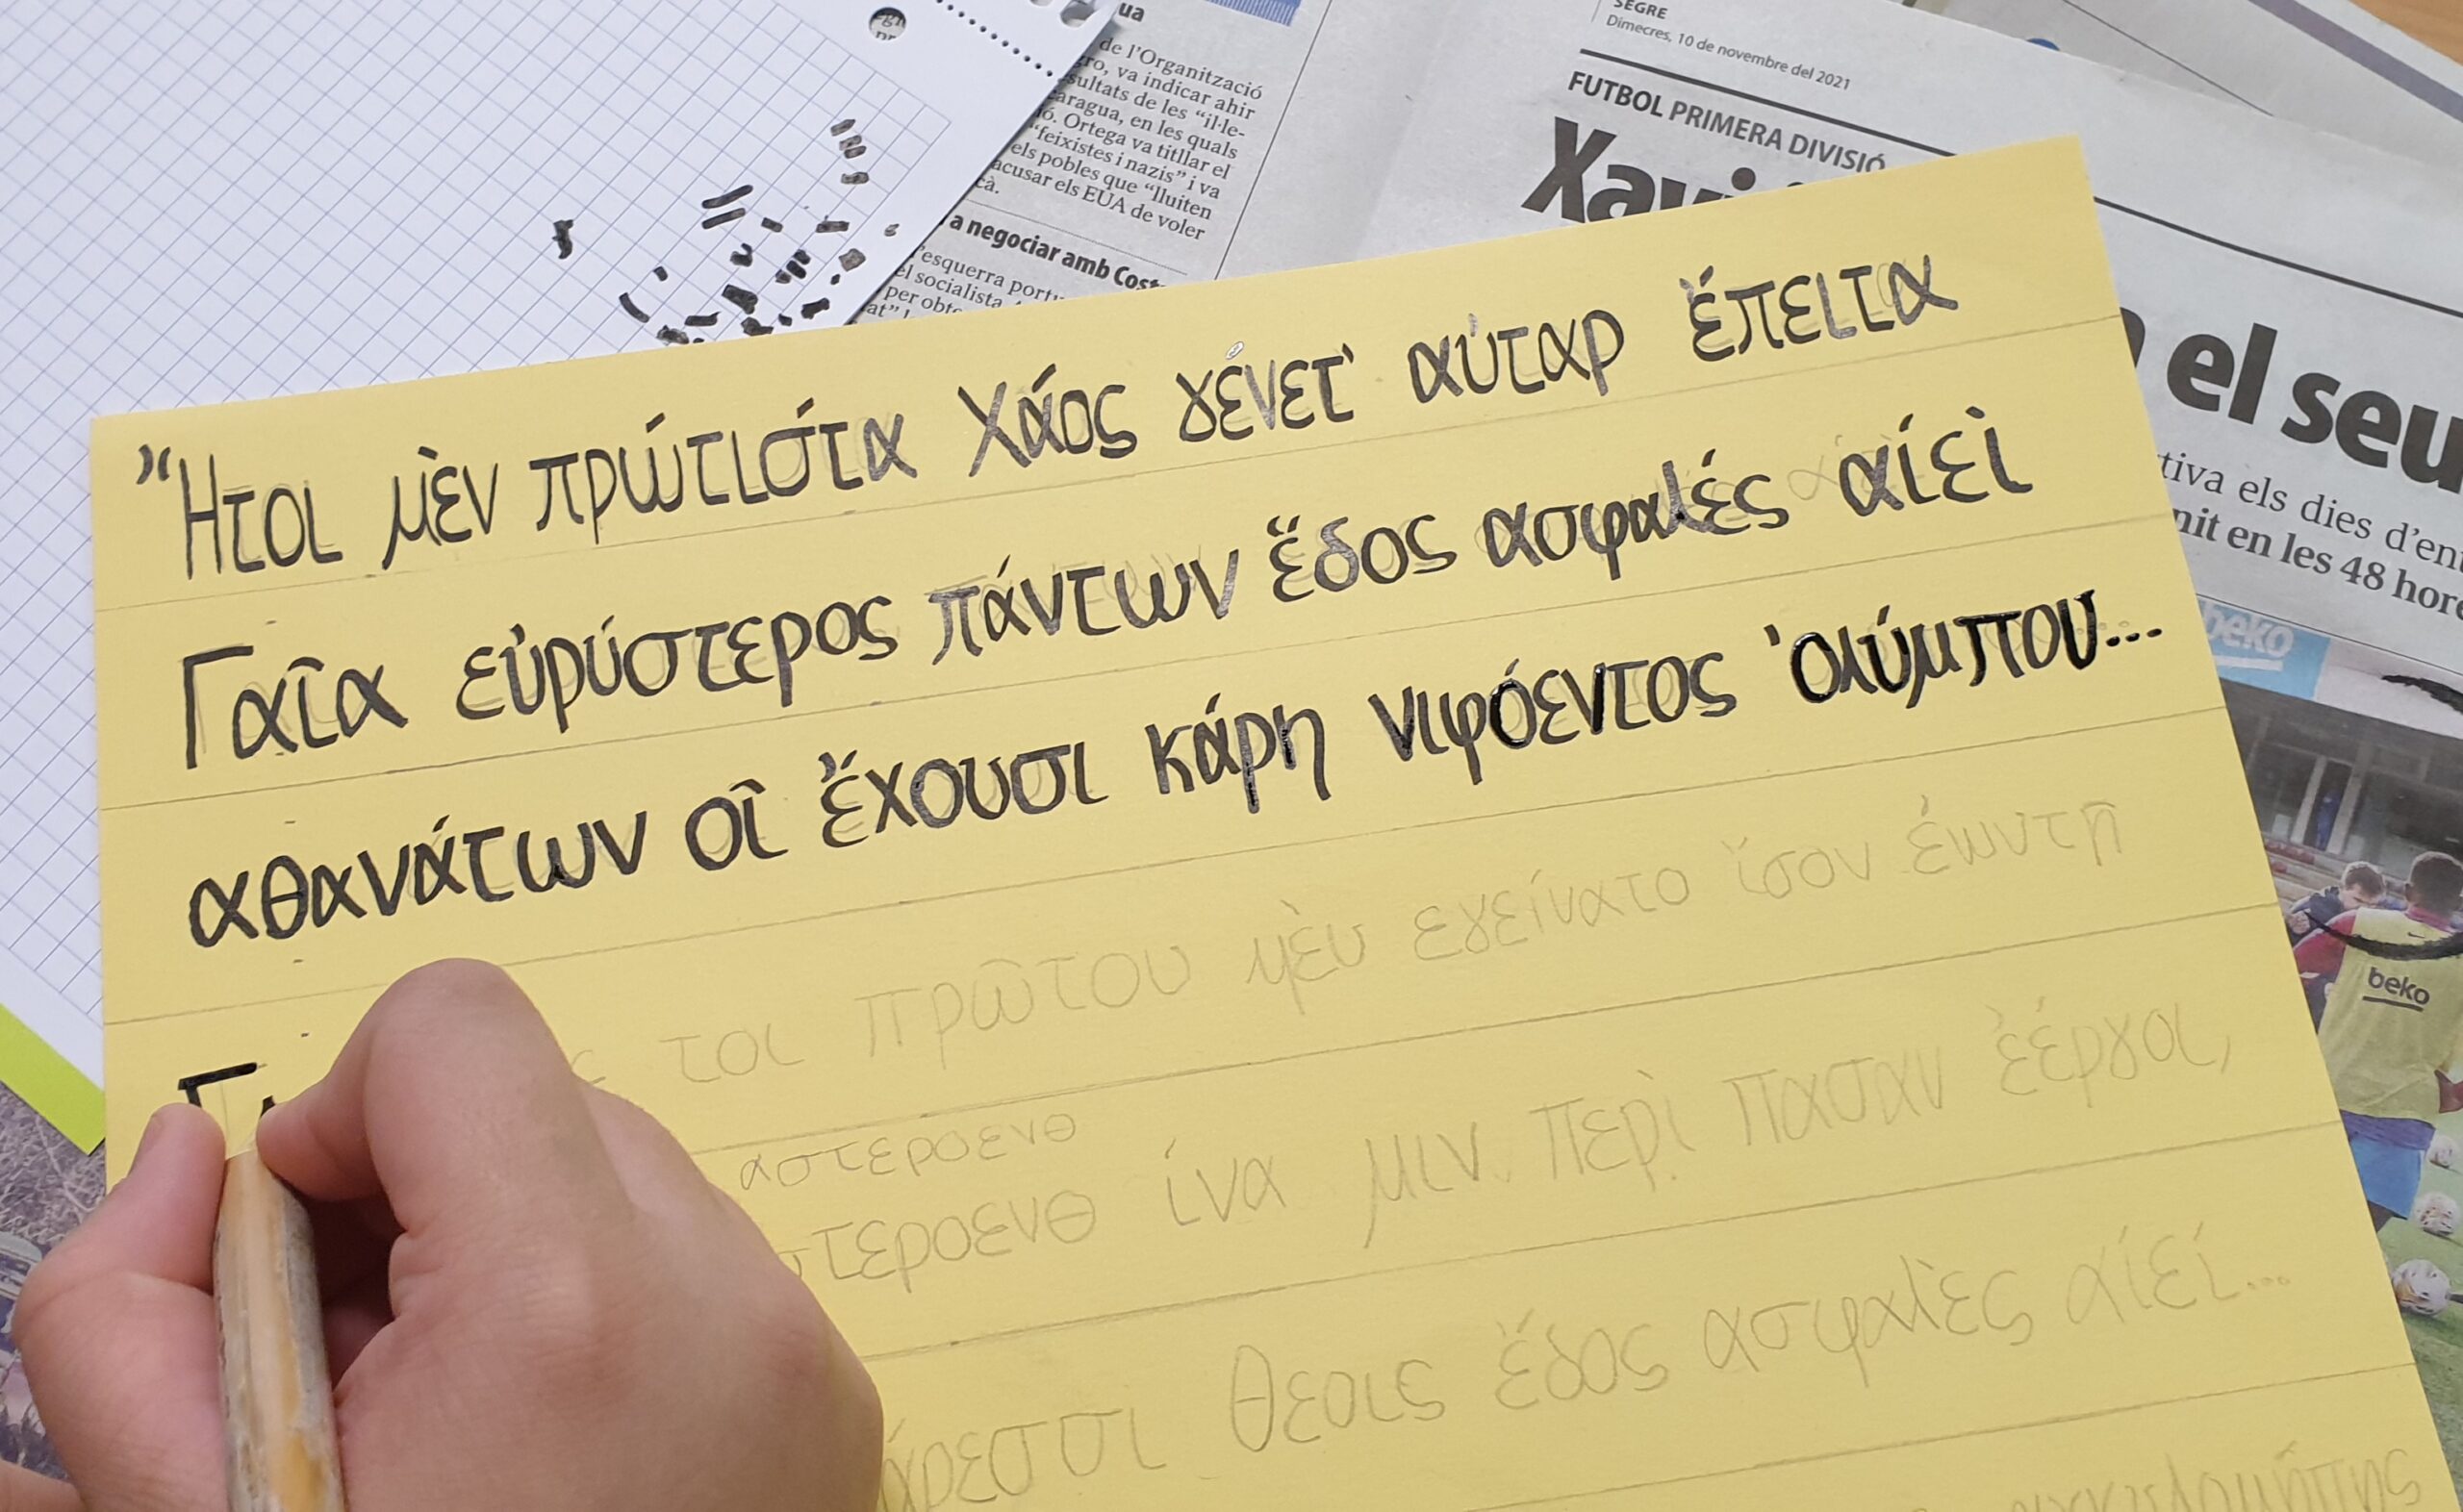 ua
de l'Organització
ro, va indicar ahir
sultats de les "il·le-
aragua, en les quals
ió. Ortega va titllar el
"feixistes i nazis" i va
els pobles que "lluiten
acusar els EUA de voler
cà.
a negociar amb Cost
'esquerra portu
el socialista
per obte
at"
SEGRE
Dimecres, 10 de novembre del 2021
FUTBOL PRIMERA DIVISIÓ
Xavi
el seu
tiva els dies d'ent
nit en les 48 hore
beko
beko
"Ητοι μὲν πρώτιστα Χάος γένετ' αὐταρ ἔπειτα
Γαῖα εὐρύστερος πάντων ἕδος ασφαλές αἰεὶ
αθανάτων οῖ ἔχουσι κάρη νιφόεντος 'ολύμπου...
τοι πρῶτου μὲν εγείνατο ἴσον έωντῆ
αστεροενθ
στεροενθ ίνα μιν. Περὶ πασαν ἐέργοι,
άρεσσι θεοις ἕδος ασφαλὲς αίεί...